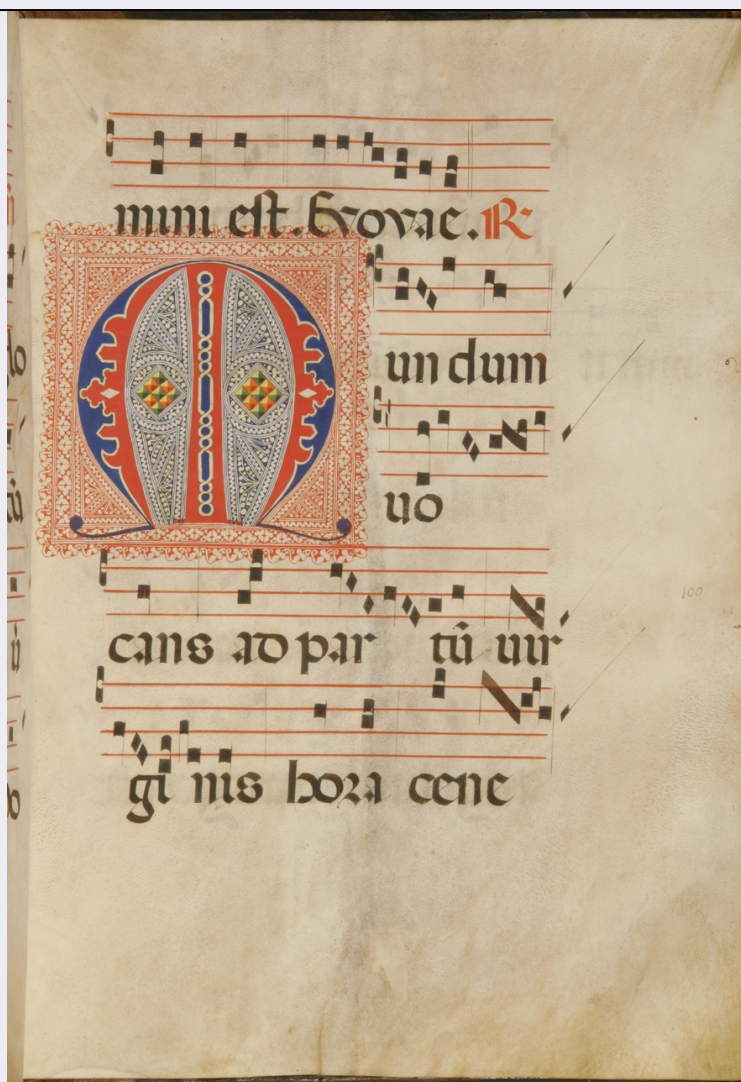 mini est. Evovae. R
Mundum
vo
cans ad par tũ uir
gi nis hora cene
100